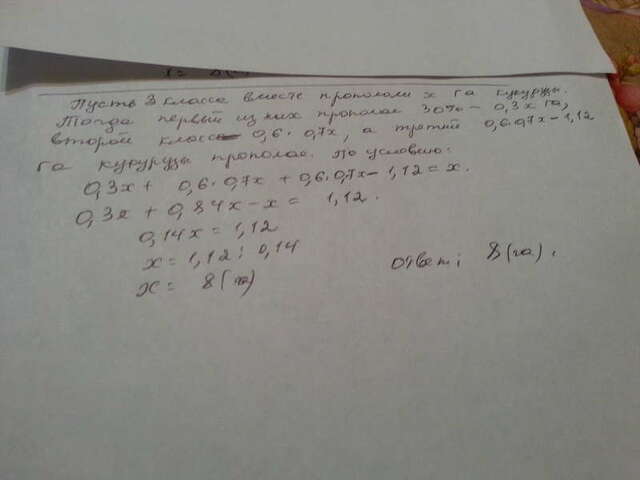 Пусть 3 класса вместе пропололи x га кукурузы.
Тогда первый из них прополол 30% - 0,3x га,
второй класс - 0,6·0,7x, а третий 0,6·0,7x-1,12
га кукурузы прополол. По условию:
0,3x + 0,6·0,7x + 0,6·0,7x - 1,12 = x.
0,3x + 0,84x - x = 1,12.
0,14x = 1,12
x = 1,12 : 0,14
x = 8 (га)
Ответ: 8 (га).